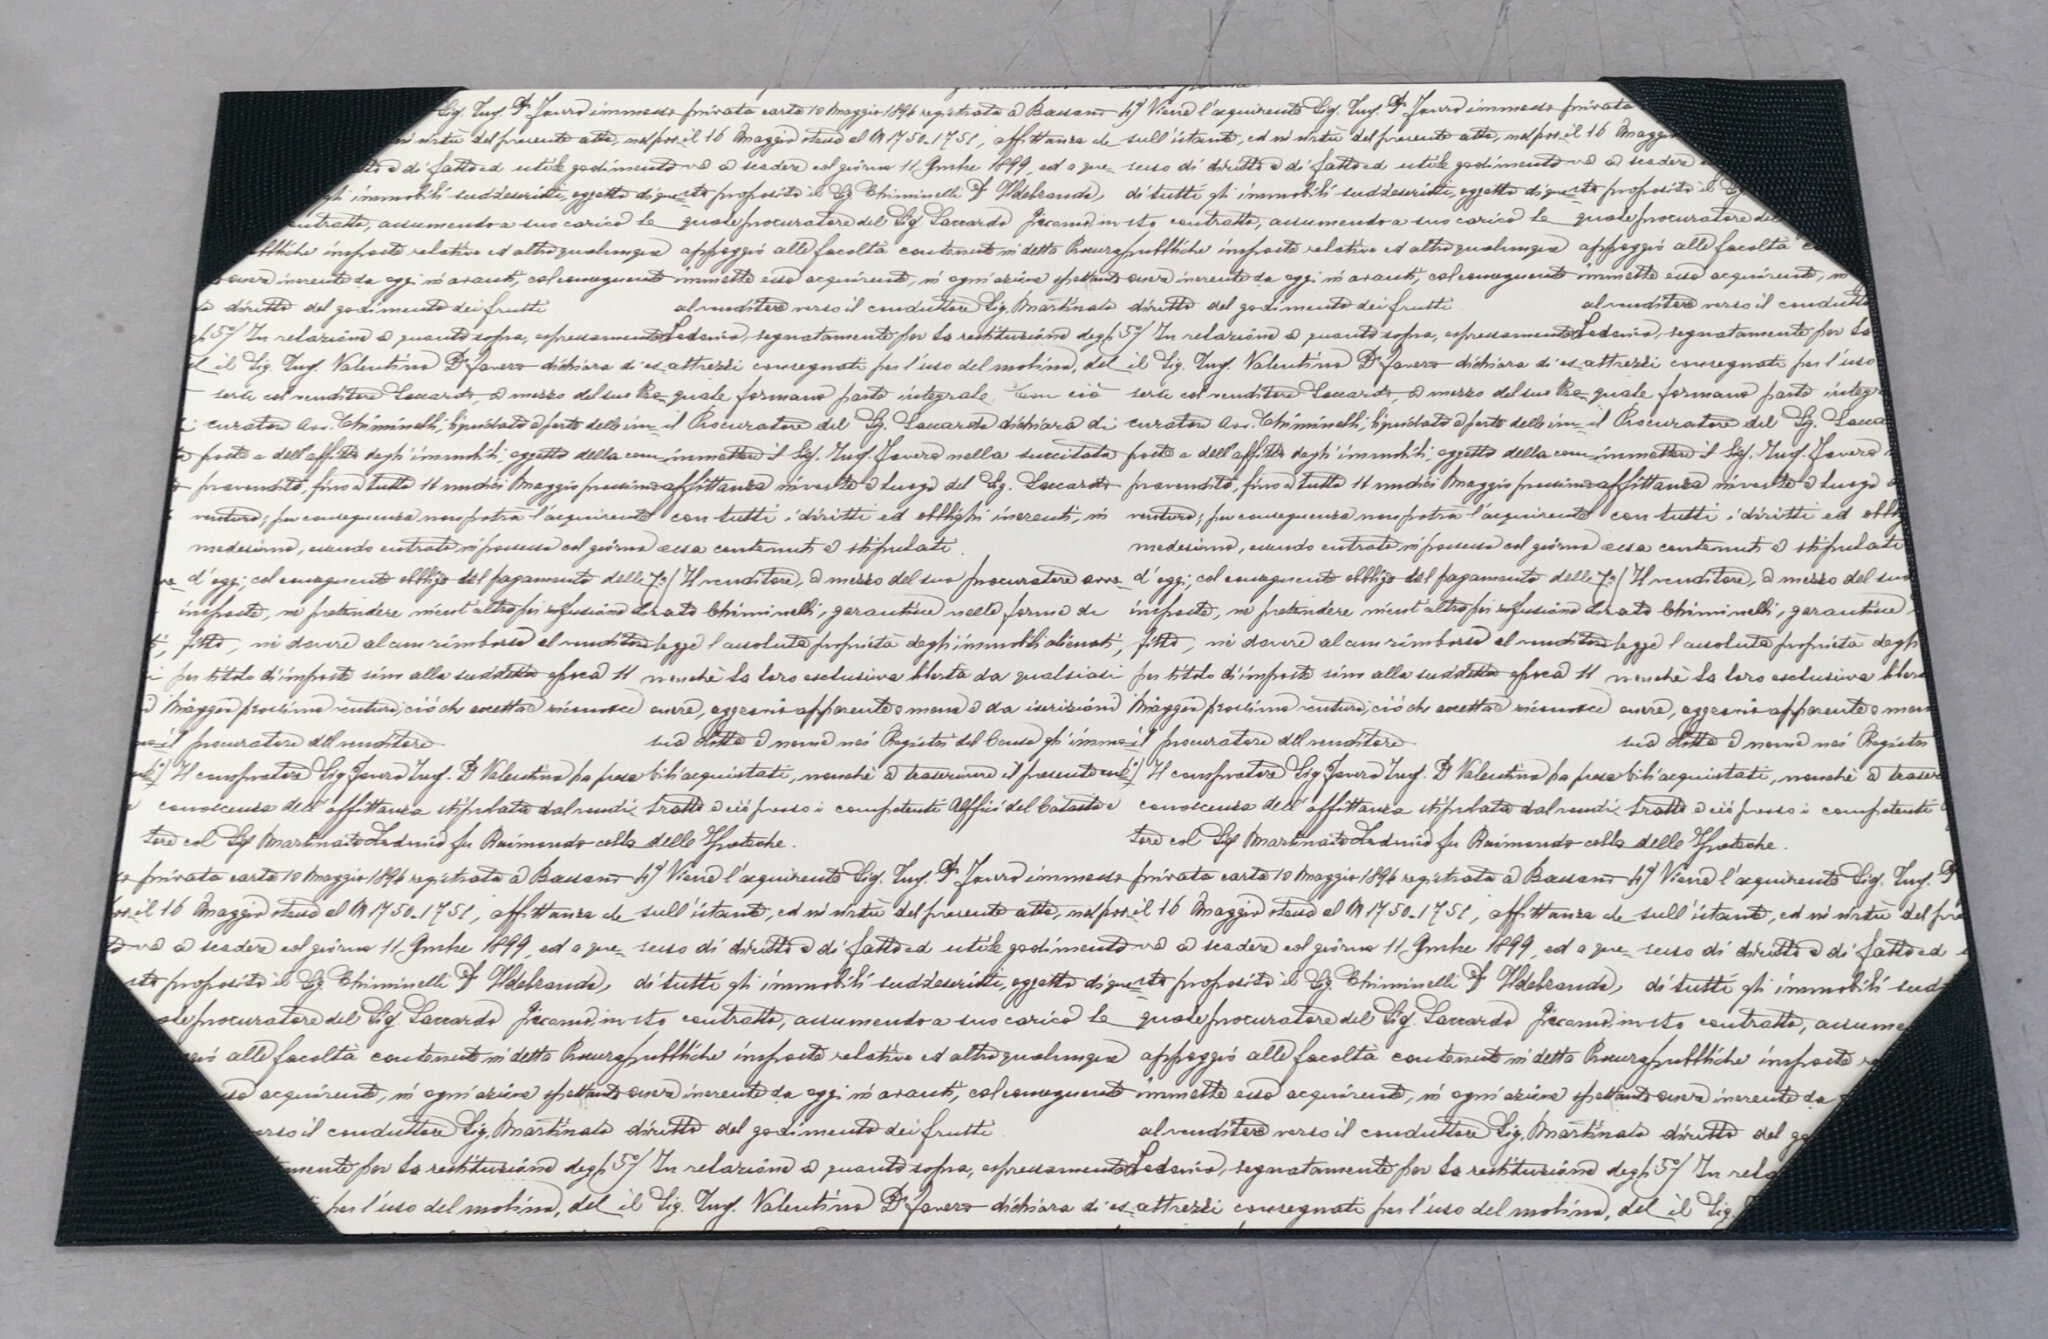 Sig. Ing. Dr Favero immesso privata carta 10 Maggio 1894 registrata a Bassano 4°/ Viene l'acquirente Sig. Ing. Dr Favero immesso privata
in virtù del presente atto, nel pos- il 16 Maggio stesso al N 1750-1751, affittanza che sull'istante, ed in virtù del presente atto, nel pos- il 16 Maggio
e di fatto ed utile godimento va a scadere col giorno 11 9mbre 1899, ed a que- sesso di diritto e di fatto ed utile godimento va a scadere
gli immobili suddescritti, oggetto di que- sto proposito il Sig Chiminelli Dr Ildebrando, di tutti gli immobili suddescritti, oggetto di que- sto proposito il Sig
contratto, assumendo a suo carico le quale procuratore del Sig Laccardo in sto contratto, assumendo a suo carico le quale procuratore del
pubbliche imposte relative ed altro qualunque appoggio alle facoltà contenute in detta Procura pubbliche imposte relative ed altro qualunque appoggio alle facoltà
onere inerente da oggi in avanti, col conseguente immette esso acquirente, in ogni azione spettante onere inerente da oggi in avanti, col conseguente immette esso acquirente, in
diritto del godimento dei frutti al venditore verso il conduttore Sig. Martinato diritto del godimento dei frutti al venditore verso il condutto
5°/ In relazione a quanto sopra, espressamente Lodovico, segnatamente per la restituzione degli 5°/ In relazione a quanto sopra, espressamente Lodovico, segnatamente per la
il Sig. Ing. Valentino Dr Favero dichiara di es- attrezzi consegnati per l'uso del molino, del il Sig. Ing. Valentino Dr Favero dichiara di es- attrezzi consegnati per l'uso
sersi col venditore Laccardo, a mezzo del suo Pro- quale formano parte integrale. Con ciò sersi col venditore Laccardo, a mezzo del suo Pro- quale formano parte integr
curatore Avv. Chiminelli, liquidato a parte delle im- il Procuratore del Sig. Laccardo dichiara di curatore Avv. Chiminelli, liquidato a parte delle im- il Procuratore del Sig. Lacca
poste e dell'affitto degli immobili, oggetto della com- immettere il Sig. Ing. Favero nella succitata poste e dell'affitto degli immobili, oggetto della com- immettere il Sig. Ing. Favero
pravendita, fino a tutto 11 undici Maggio prossimo affittanza in veste e luogo del Sig. Laccardo pravendita, fino a tutto 11 undici Maggio prossimo affittanza in veste e luogo
venturo; per conseguenza non potrà l'acquirente con tutti i diritti ed obblighi inerenti, in venturo; per conseguenza non potrà l'acquirente con tutti i diritti ed obbl
medesimo, essendo entrato in possesso col giorno essa contenuti e stipulati. medesimo, essendo entrato in possesso col giorno essa contenuti e stipulati
d'oggi; col conseguente obbligo del pagamento delle 7°/ Il venditore, a mezzo del suo procuratore avvo- d'oggi; col conseguente obbligo del pagamento delle 7°/ Il venditore, a mezzo del suo
imposte, ne pretendere nient'altro per rifusione di cato Chiminelli, garantisce nelle forme di imposte, ne pretendere nient'altro per rifusione di cato Chiminelli, garantisce
fitto, ne dovere alcun rimborso al venditore legge l'assoluta proprietà degli immobili alienati, fitto, ne dovere alcun rimborso al venditore legge l'assoluta proprietà degli
per titolo di imposte sino alla suddetta epoca 11 nonchè la loro esclusiva libertà da qualsiasi per titolo di imposte sino alla suddetta epoca 11 nonchè la loro esclusiva liber
Maggio prossimo venturo, ciò che accetta e riconosce onere, aggravio apparente o meno e da iscrizioni Maggio prossimo venturo, ciò che accetta e riconosce onere, aggravio apparente o meno
il procuratore del venditore sua ditta e nome nei Registri del Censo gli immo- il procuratore del venditore sua ditta e nome nei Registri
6°/ Il compratore Sig Favero Ing. Dr Valentino fa piena bili acquistati, nonchè a trascrivere il presente con- 6°/ Il compratore Sig Favero Ing. Dr Valentino fa piena bili acquistati, nonchè a trascr
conoscenza dell'affittanza stipulata dal vendi- tratto e ciò presso i competenti Uffici del Catasto e conoscenza dell'affittanza stipulata dal vendi- tratto e ciò presso i competenti
tore col Sig Martinato Lodovico fu Raimondo colla delle Ipoteche. tore col Sig Martinato Lodovico fu Raimondo colla delle Ipoteche.
privata carta 10 Maggio 1894 registrata a Bassano 4°/ Viene l'acquirente Sig. Ing. Dr Favero immesso privata carta 10 Maggio 1894 registrata a Bassano 4°/ Viene l'acquirente Sig. Ing. Dr
il 16 Maggio stesso al N 1750-1751, affittanza che sull'istante, ed in virtù del presente atto, nel pos- il 16 Maggio stesso al N 1750-1751, affittanza che sull'istante, ed in virtù del pre
va a scadere col giorno 11 9mbre 1899, ed a que- sesso di diritto e di fatto ed utile godimento va a scadere col giorno 11 9mbre 1899, ed a que- sesso di diritto e di fatto ed
sto proposito il Sig Chiminelli Dr Ildebrando, di tutti gli immobili suddescritti, oggetto di que- sto proposito il Sig Chiminelli Dr Ildebrando, di tutti gli immobili sud
quale procuratore del Sig Laccardo in sto contratto, assumendo a suo carico le quale procuratore del Sig Laccardo in sto contratto, assume
alle facoltà contenute in detta Procura pubbliche imposte relative ed altro qualunque appoggio alle facoltà contenute in detta Procura pubbliche imposte
acquirente, in ogni azione spettante onere inerente da oggi in avanti, col conseguente immette esso acquirente, in ogni azione spettante onere inerente da
verso il conduttore Sig. Martinato diritto del godimento dei frutti. al venditore verso il conduttore Sig. Martinato diritto del go
tamente per la restituzione degli 5°/ In relazione a quanto sopra, espressamente Lodovico, segnatamente per la restituzione degli 5°/ In rela
per l'uso del molino, del il Sig. Ing. Valentino Dr Favero dichiara di es- attrezzi consegnati per l'uso del molino, del il Sig.